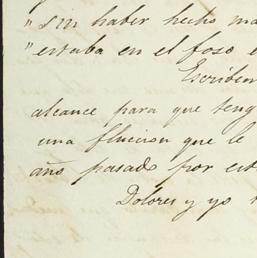 "sin haber hecho ma
"estaba en el foso e
Escriben
alcance para que teng
una fluxion que le
año pasado por est
Dolores y yo